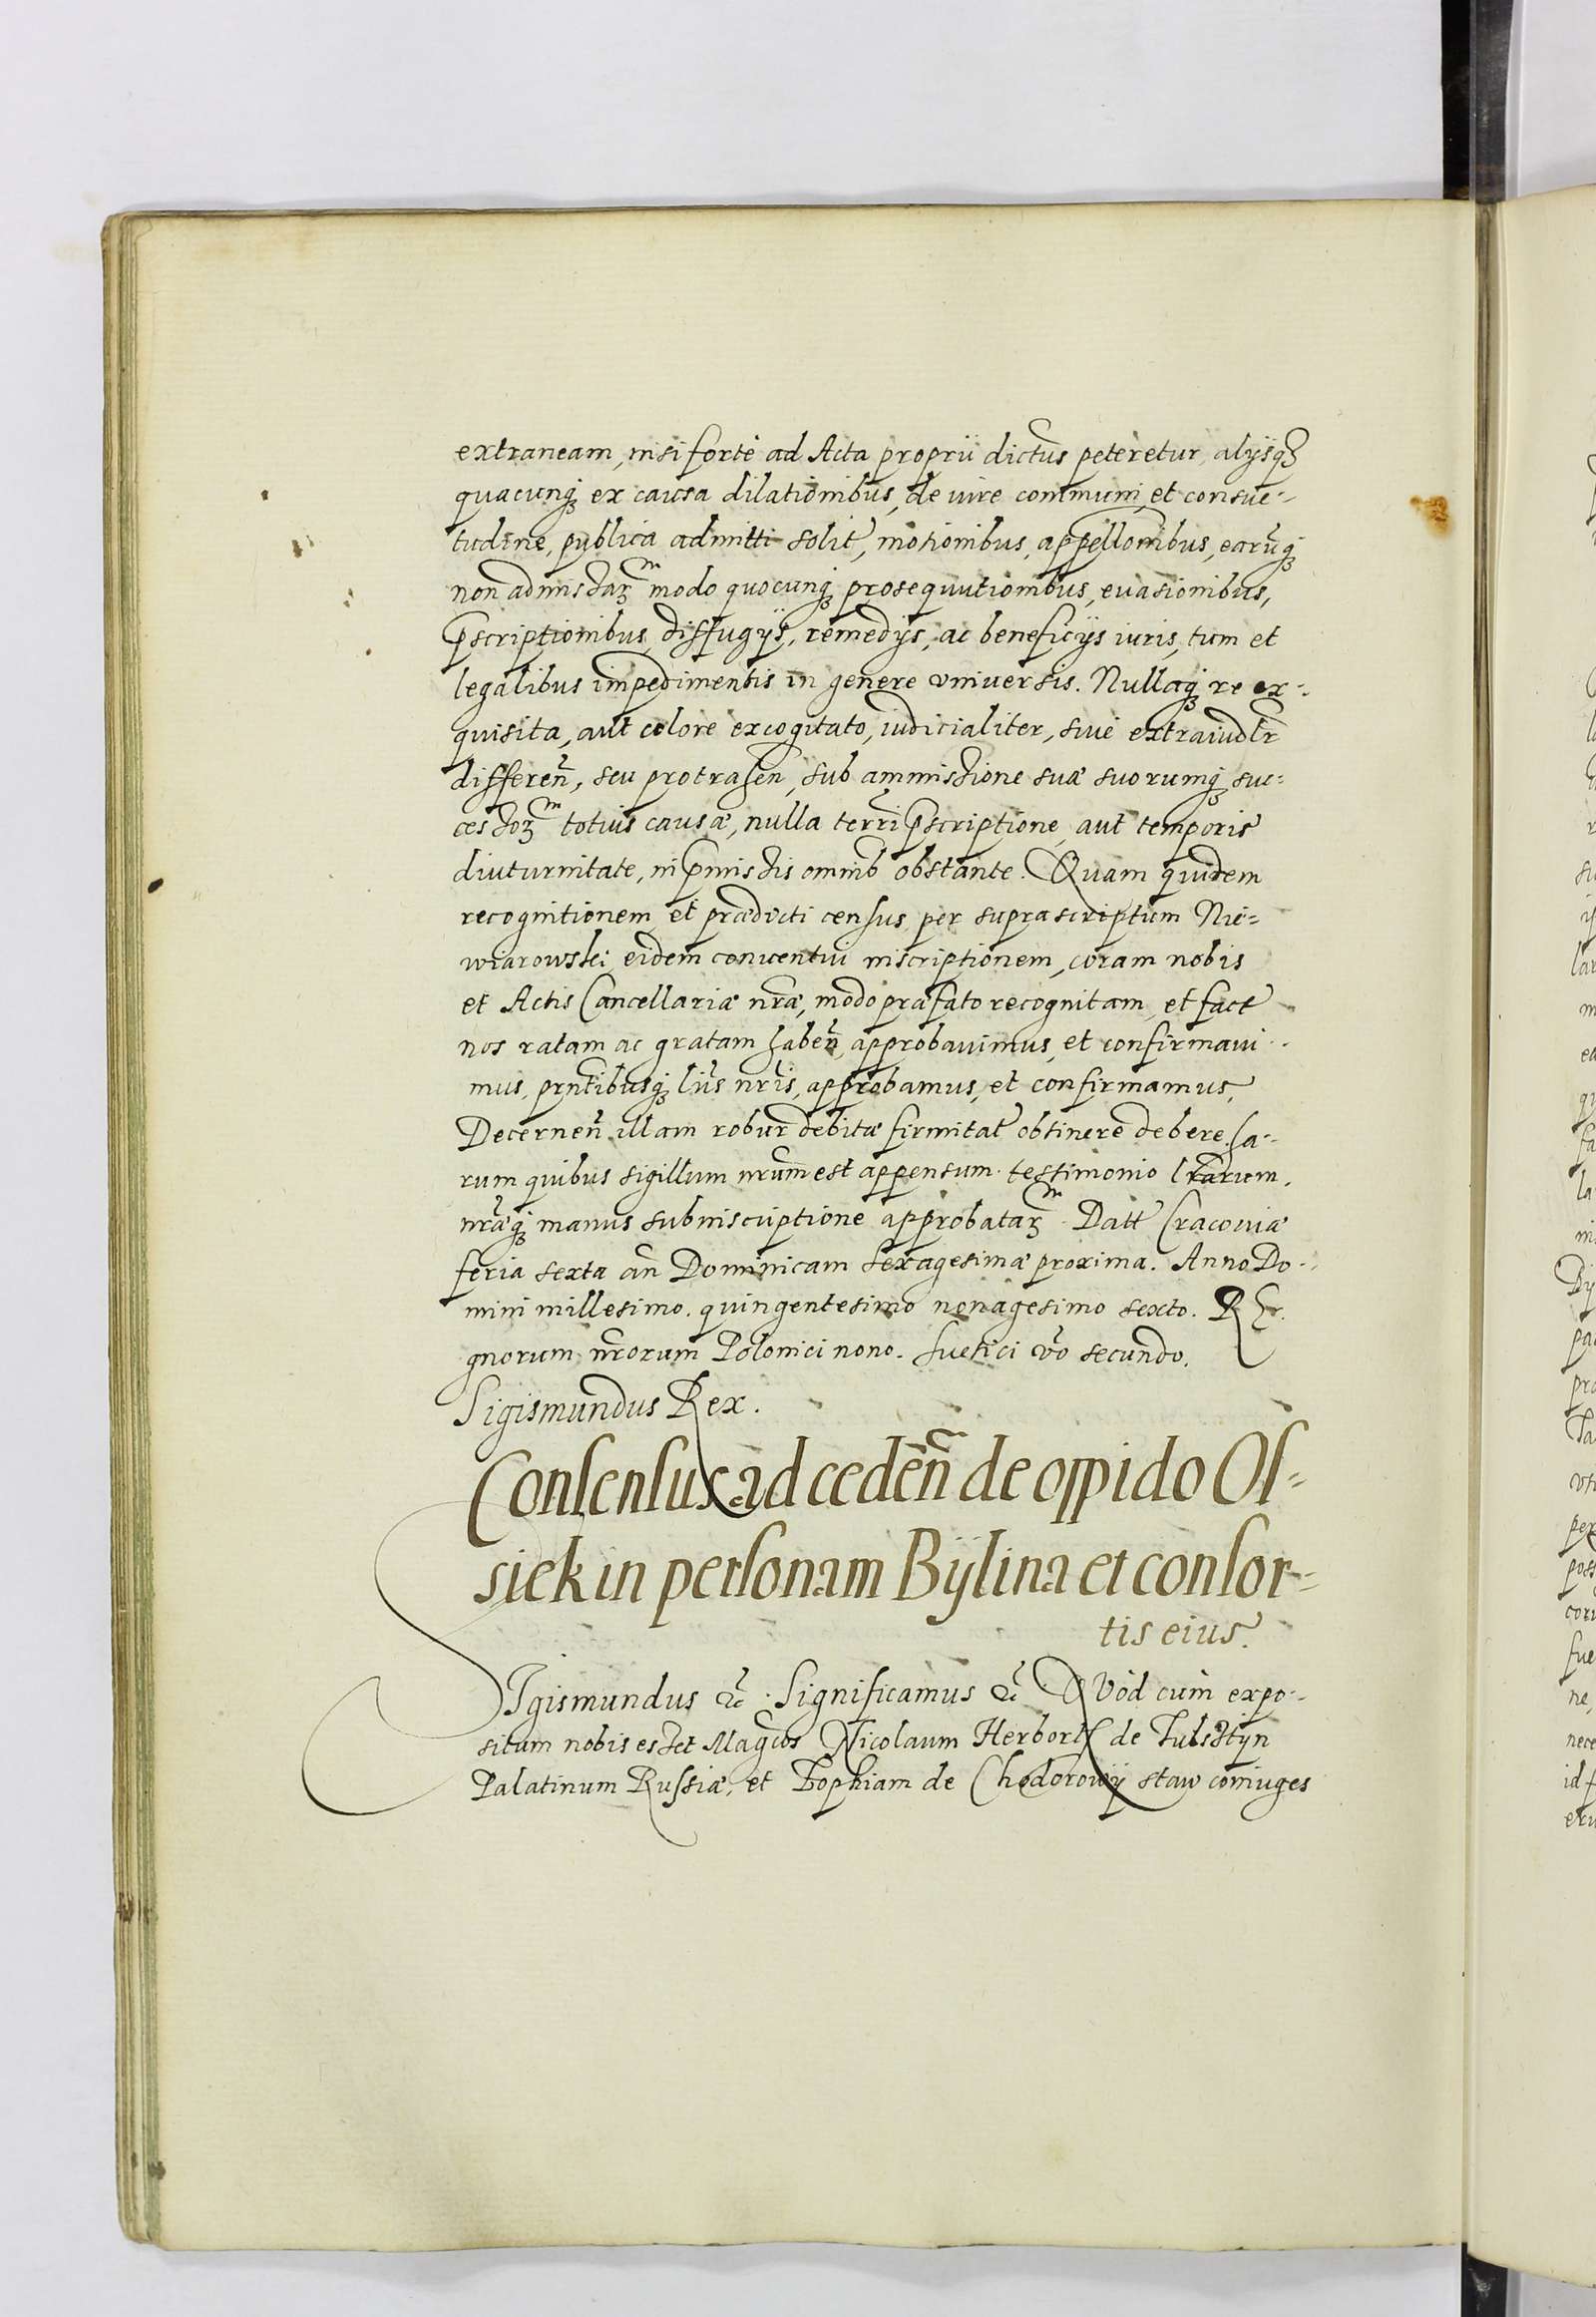 extraneam, nisi forte ad Acta proprii dictus peteretur, alijsqȝ
quacunqȝ ex causa dilationibus, de iure communi, et consue-
tudine, publica admitti solit, motionibus, appellonibus, earūqȝ
non admissaꝝ modo quocunqȝ prosequutionibus, euasionibus,
p̄scriptionibus, diffugijs, remedijs, ac beneficijs iuris, tum et
legalibus impedimentis in genere vniuersis. Nullaqȝ re ex-
quisita, aut colore excogitato, iudicialiter, siue extraiudlr
differeñ, seu protraheñ, sub ammissione suæ suorumqȝ suc-
cessoꝝ totius causæ, nulla terri p̄scriptione, aut temporis
diuturnitate, in p̄missis omnib obstante. Quam quidem
recognitionem, et prædicti census per suprascriptum Nie-
wiarowski eidem conuentui inscriptionem, coram nobis
et Actis Cancellariæ nræ, modo præfato recognitam, et fact
nos ratam ac gratam habeñ, approbauimus, et confirmaui
mus, prntibusqȝ lris nris, approbamus, et confirmamus,
Decerneñ illam robur debitæ firmitat obtinere debere. Ha-
rum quibus sigillum nrum est appensum testimonio lrarum,
nraqȝ manus subinscriptione approbataꝝ. Datt Cracouiæ
feria sexta an Dominicam Sexagesimæ proxima. Anno Do-
mini millesimo. quingentesimo nonagesimo sexto. Re-
gnorum nrorum Polonici nono. Suetici vo secundo.
Sigismundus Rex.
Consensus ad cedeñ de oppido Os-
siek in personam Bÿlina et consor-
tis eius.
SIgismundus &c. Significamus &c QVod cum expo-
situm nobis esset Magcos Nicolaum Herbort de Fulstijn
Palatinum Russiæ, et Zophiam de Chodorowy staw coniuges